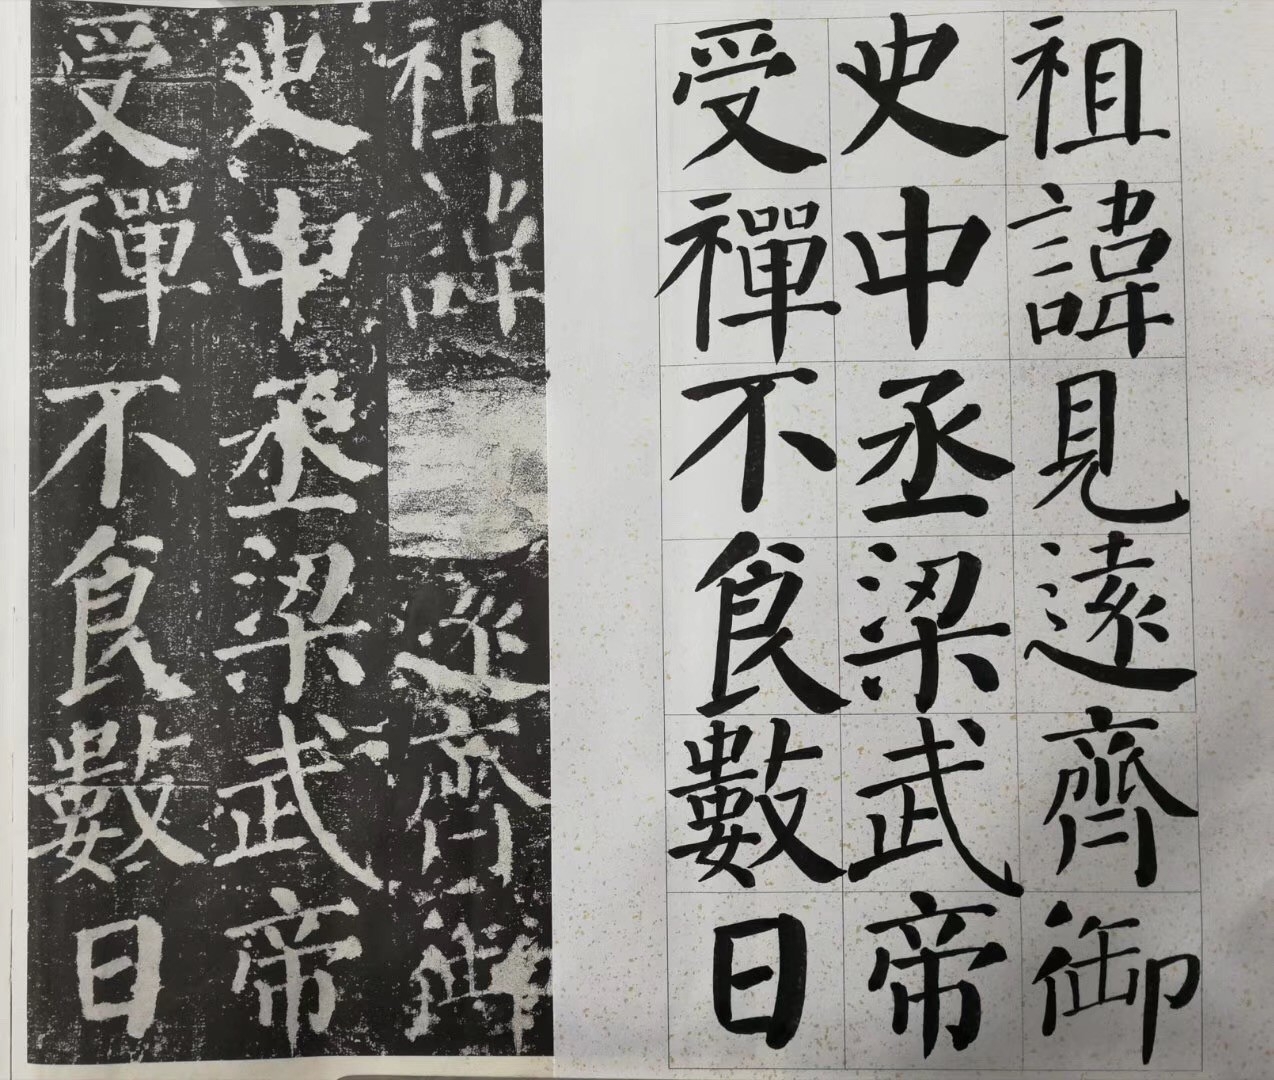 祖諱見遠齊御
史中丞梁武帝
受禪不食數日
祖諱遠齊御
史中丞梁武帝
受禪不食數日